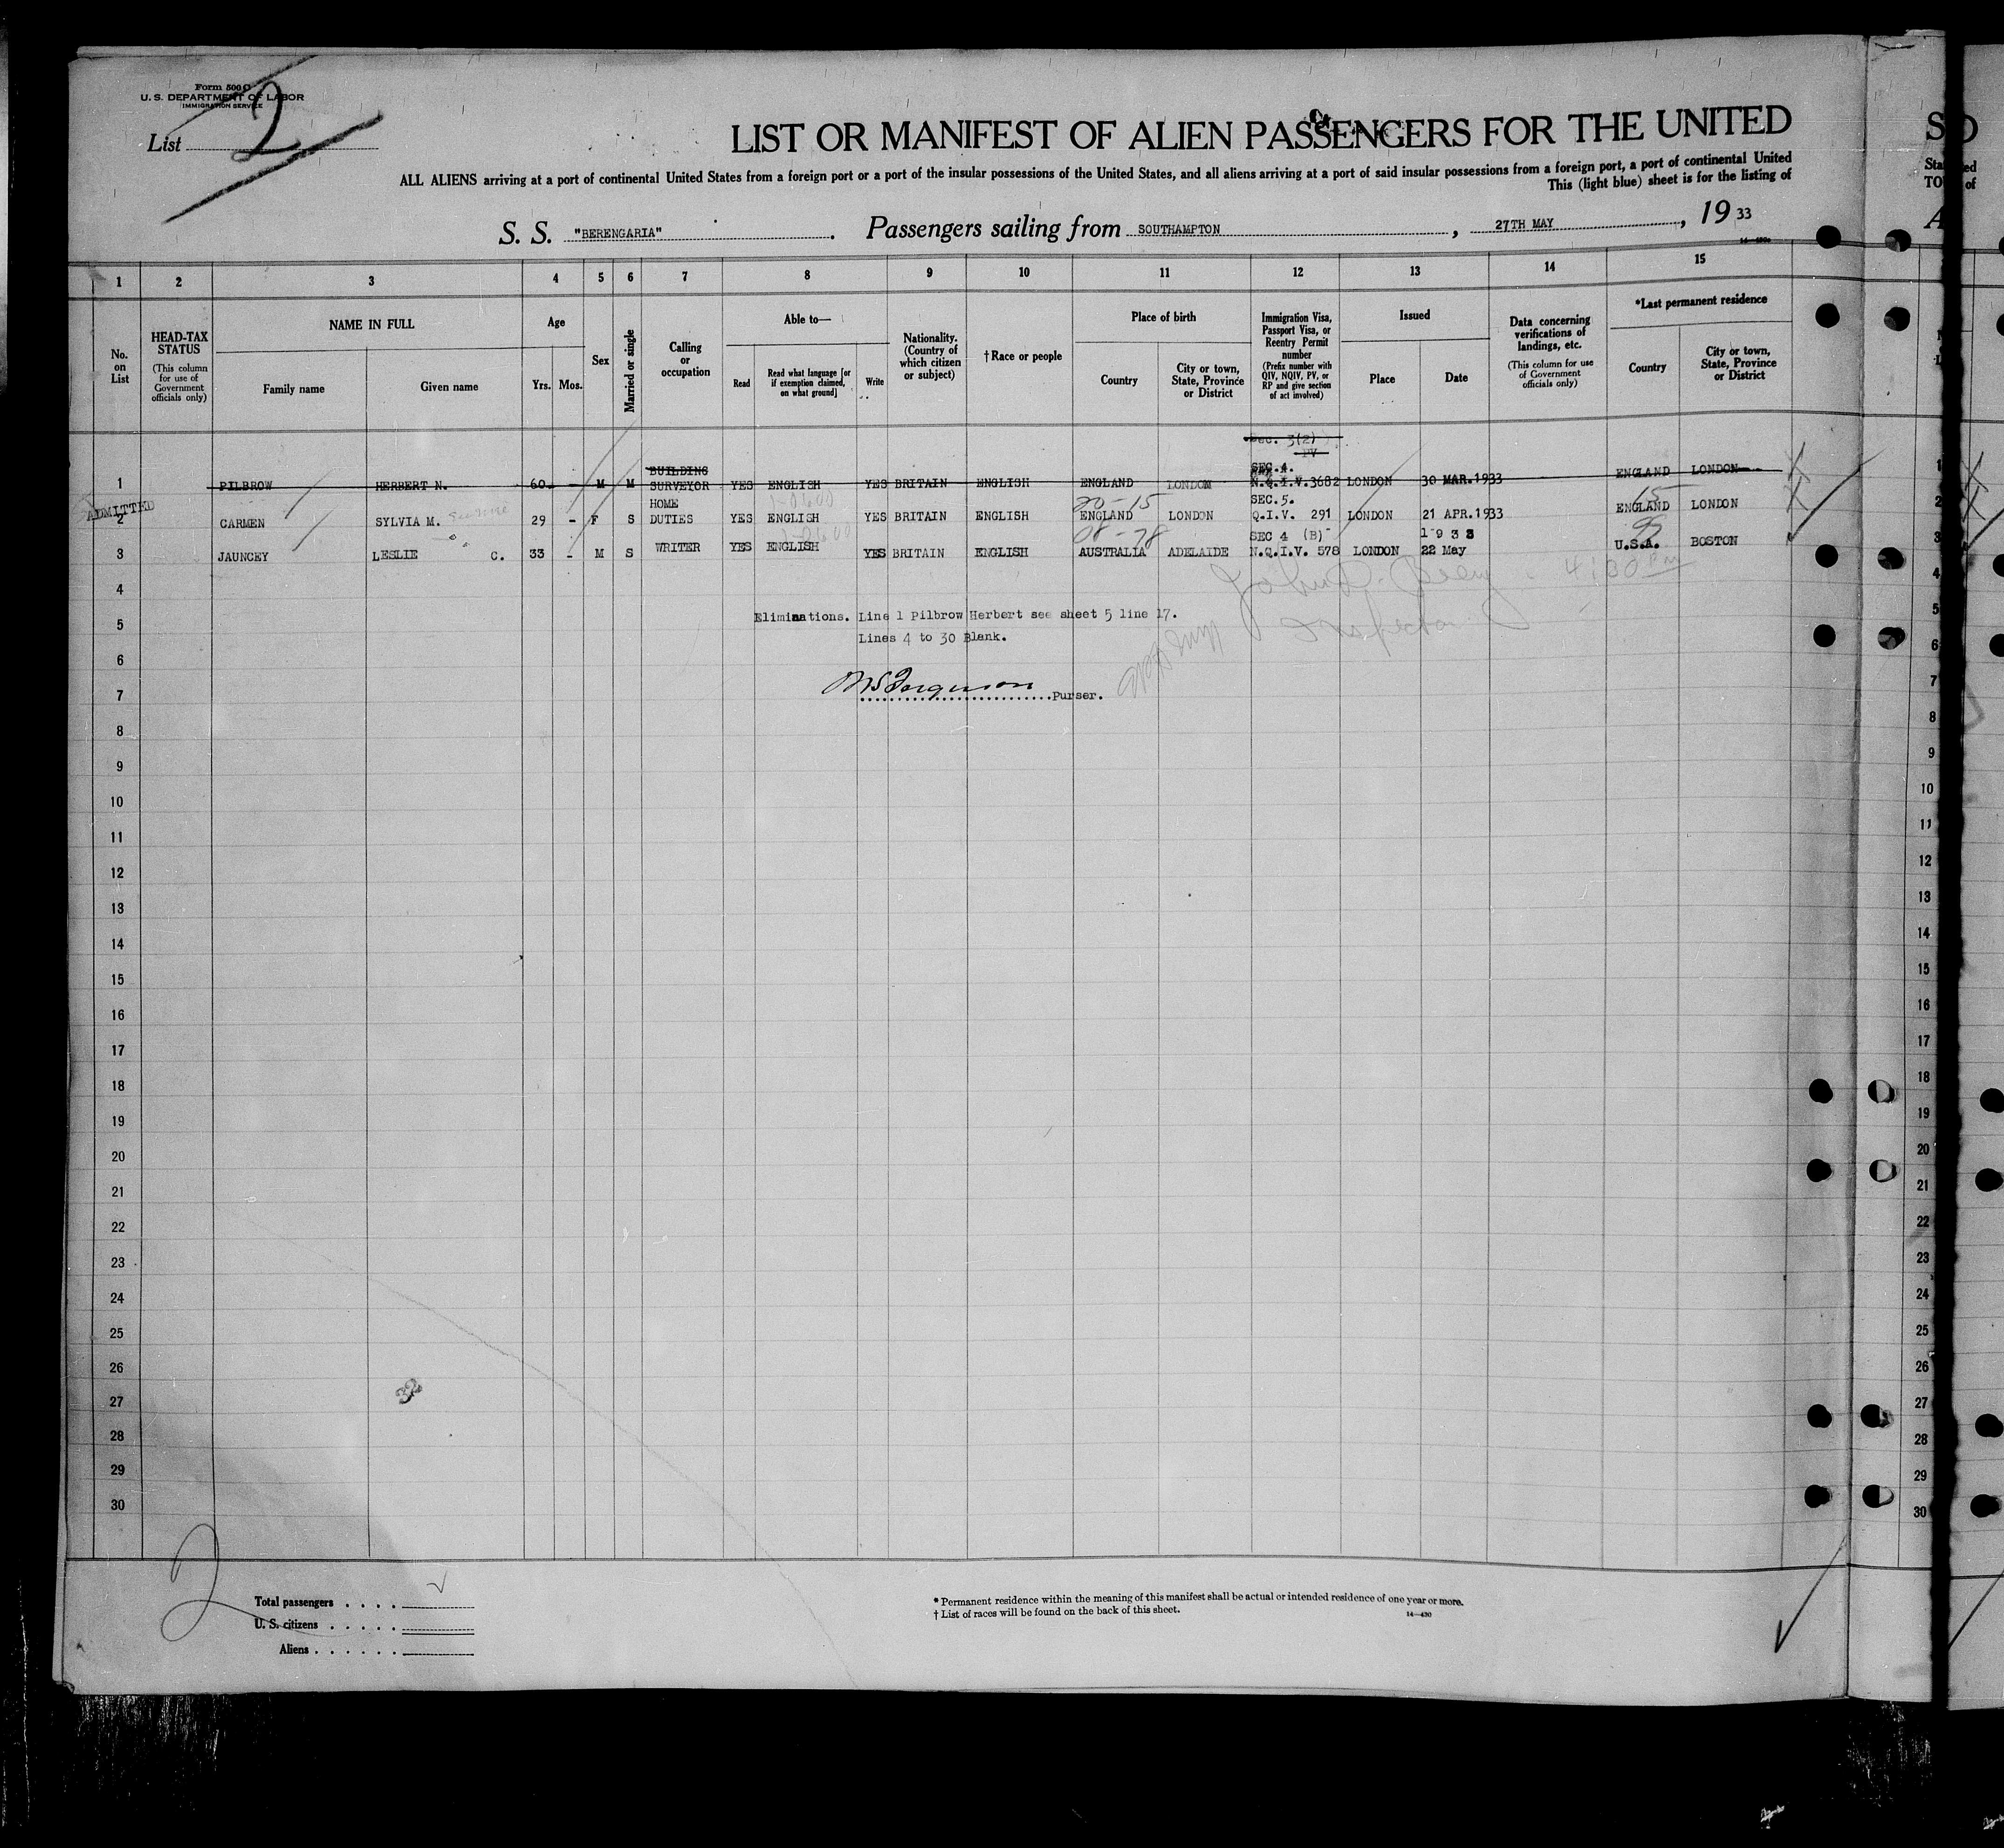 Form 500 C
U. S. DEPARTMENT OF LABOR
IMMIGRATION SERVICE
List 2
LIST OR MANIFEST OF ALIEN PASSENGERS FOR THE UNITED
ALL ALIENS arriving at a port of continental United States from a foreign port or a port of the insular possessions of the United States, and all aliens arriving at a port of said insular possessions from a foreign port, a port of continental United
This (light blue) sheet is for the listing of
S. S. "BERENGARIA". Passengers sailing from SOUTHAMPTON, 27TH MAY, 1933
1 2 3 4 5 6 7 8 9 10 11 12 13 14 15
No. on List
HEAD-TAX STATUS
(This column for use of Government officials only)
NAME IN FULL
Family name
Given name
Age
Yrs. Mos.
Sex
Married or single
Calling or occupation
Able to—
Read
Read what language [or if exemption claimed, on what ground]
Write
Nationality. (Country of which citizen or subject)
†Race or people
Place of birth
Country
City or town, State, Province or District
Immigration Visa, Passport Visa, or Reentry Permit number
(Prefix number with QIV, NQIV, PV, or RP and give section of act involved)
Issued
Place
Date
Data concerning verifications of landings, etc.
(This column for use of Government officials only)
*Last permanent residence
Country
City or town, State, Province or District
Sec. 3(2)
PV
BUILDING SEC.4.
1 PILBROW HERBERT N. 60 - M M SURVEYOR YES ENGLISH YES BRITAIN ENGLISH ENGLAND LONDON N.Q.I.V.3682 LONDON 30 MAR.1933 ENGLAND LONDON
ADMITTED
HOME 20-15 SEC.5. 15
2 CARMEN SYLVIA M. 29 - F S DUTIES YES ENGLISH YES BRITAIN ENGLISH ENGLAND LONDON Q.I.V. 291 LONDON 21 APR.1933 ENGLAND LONDON
08-78 SEC 4 (B) 1933
3 JAUNCEY LESLIE C. 33 - M S WRITER YES ENGLISH YES BRITAIN ENGLISH AUSTRALIA ADELAIDE N.Q.I.V. 578 LONDON 22 May U.S.A. BOSTON
4
4:30 Pm
Inspector
5 Eliminations. Line 1 Pilbrow Herbert see sheet 5 line 17.
Lines 4 to 30 Blank.
6
7 Purser.
8
9
10
11
12
13
14
15
16
17
18
19
20
21
22
23
24
25
26
27
28
29
30
2
Total passengers
U. S. citizens
Aliens
* Permanent residence within the meaning of this manifest shall be actual or intended residence of one year or more.
† List of races will be found on the back of this sheet.
14—430